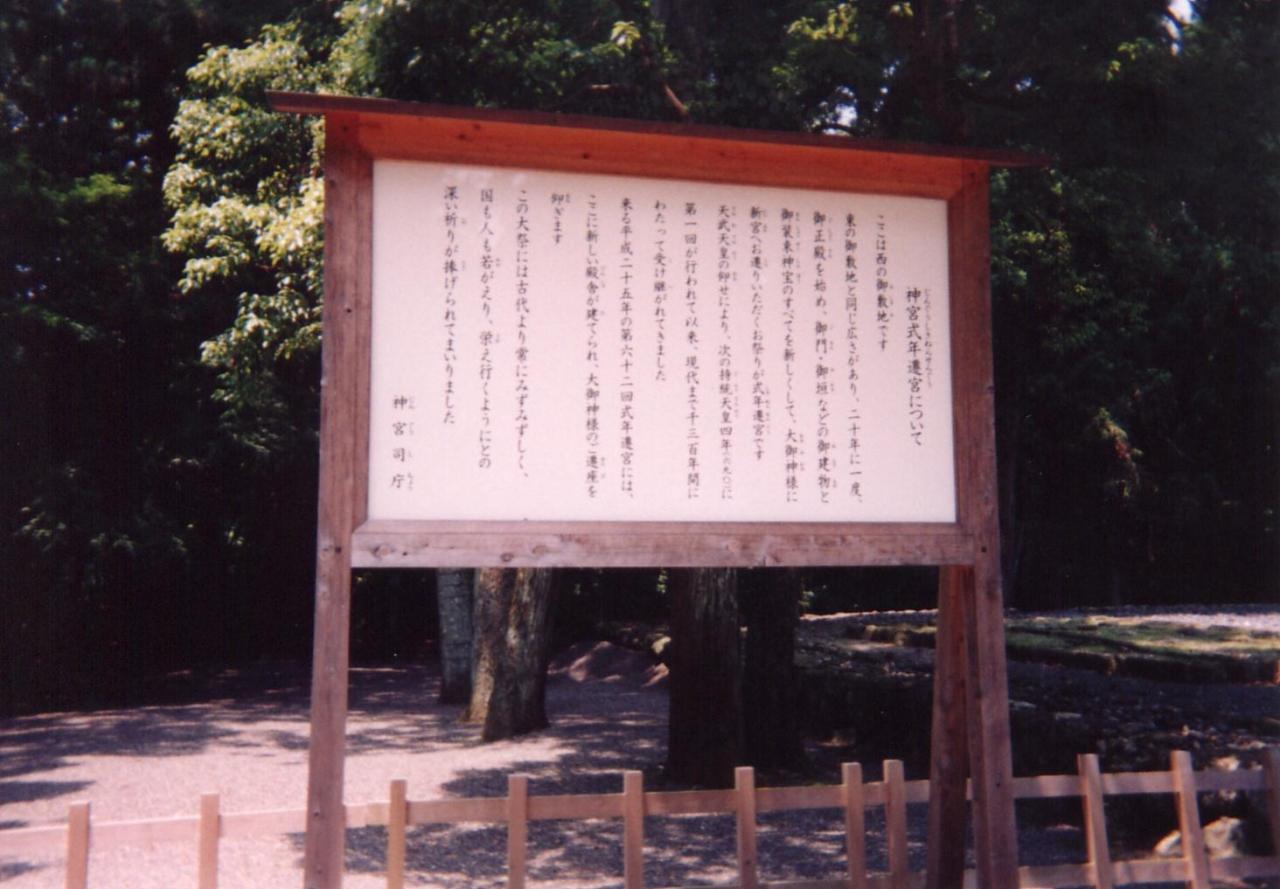 神宮式年遷宮について
ここは西の御敷地です
東の御敷地と同じ広さがあり、二十年に一度、
御正殿を始め、御門・御垣などの御建物と
御装束神宝のすべてを新しくして、大御神様に
新宮へお遷りいただくお祭りが式年遷宮です
天武天皇の仰せにより、次の持統天皇四年(六九〇)に
第一回が行われて以来、現代まで千三百年間に
わたって受け継がれてきました
来る平成二十五年の第六十二回式年遷宮には、
ここに新しい殿舎が建てられ、大御神様のご遷座を
仰ぎます
この大祭には古代より常にみずみずしく、
国も人も若がえり、栄え行くようにとの
深い祈りが捧げられてまいりました
神宮司庁